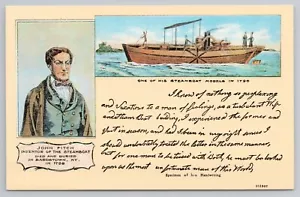 ONE OF HIS STEAMBOAT MODELS IN 1786
I know of nothing so perplexing
and vexatious to a man of feelings, as a turbulent Wife
and Steam boat building. I experienced the former and
quit in season, and had I been in my right senses I
should undoubtedly treated the latter in the same manner,
but for one man to be teised with Both, he must be looked
upon as the most unfortunate man of this World.
Specimen of his Handwriting
JOHN FITCH
INVENTOR OF THE STEAMBOAT
DIED AND BURIED
IN BARDSTOWN, KY.
IN 1798